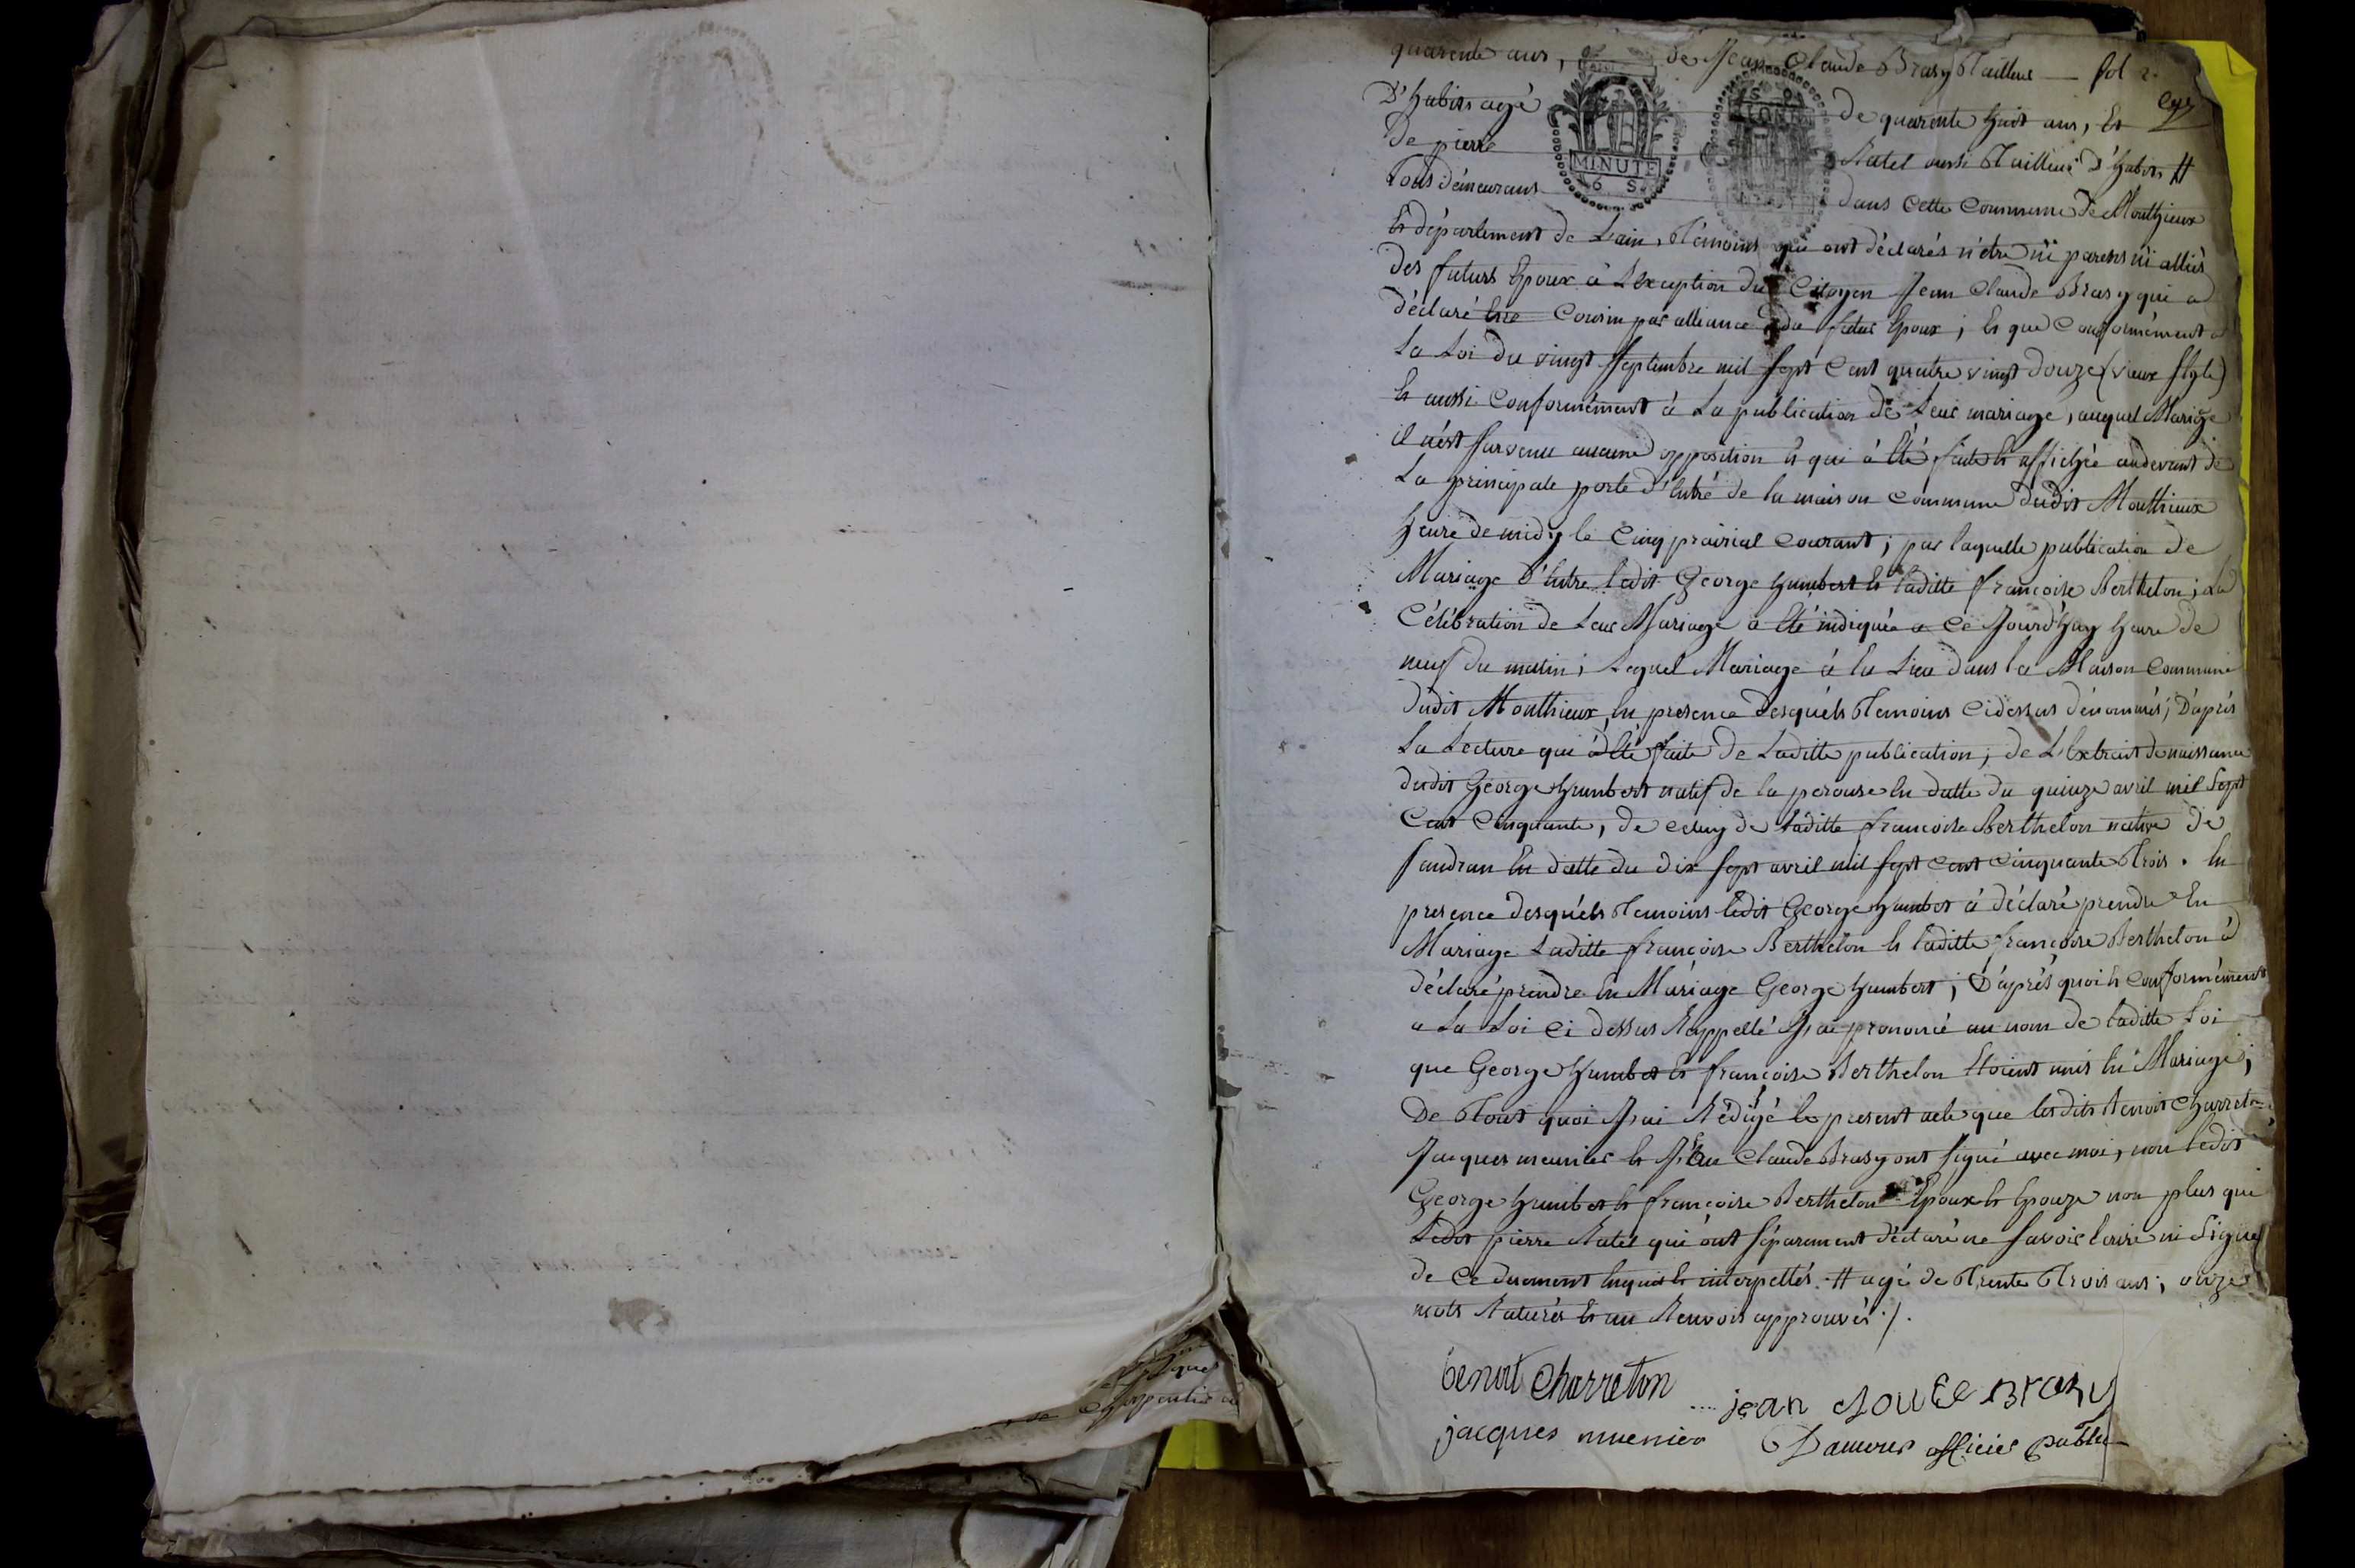 quarente ans, de Jean Claude Brasy Tailleur — fol 2.
D'habits agé de quarente huit ans, Et
De pierre Ratel aussi Tailleur D'habits #
Tous demeurans dans cette Commune De Monthieux
MINUTE
6 S.
Et département de Lain, Témoins qui ont déclarés n'etre ni parens ni alliés
des futurs Epoux à L'exception du Citoyen Jean Claude Brasy qui a
déclaré Etre Cousin par alliance du futur Epoux; Et que Conformément a
La Loi du vingt Septembre mil Sept Cent quatre vingt Douze (vieux Style)
Et aussi Conformément à La publication de Leur mariage, auquel Mariage
il n'est Survenu aucune opposition Et qui à Eté faite Et affichée audevant de
La principale porte d'Entré de la maison Commune dudit Monthieux
heure de midy le Cinq prairial Courant; par laquelle publication de
Mariage D'Entre ledit George humbert Et laditte françoise Berthelon; La
Célébration de Leur Mariage a Eté indiquée a Ce Jourd'huy heure de
neuf du matin; Lequel Mariage à Eu Lieu dans la Maison Commune
dudit Monthieux, En presence desquels Temoins Cidessus dénommés; D'après
La Lecture qui à Eté faite de Laditte publication, de L'Extrait de naissance
dudit George humbert natif de la perouse En datte du quinze avril mil Sept
Cent Cinquante, de celuy de laditte françoise Berthelon native de
Sandran En datte du dix Sept avril mil Sept Cent Cinquante Trois. En
presence desquels Temoins ledit George humbert à déclaré prendre En
Mariage Laditte françoise Berthelon Et laditte françoise Berthelon à
déclaré prendre En Mariage George humbert; D'après quoi Et Conformément
a La Loi Ci dessus Rappellé J'ai prononcé au nom de laditte Loi
que George humbert Et françoise Berthelon Etoient unis En Mariage;
De Tout quoi J'ai Rédigé le present acte que lesdits Benoit Charreton
Jacques meunier Et Jean Claude Brasy ont Signé avec moi, non ledit
George humbert Et françoise Berthelon Epoux Et Epouze non plus que
Ledit pierre Ratel qui ont Séparement déclaré ne Savoir Ecrire ni Signer
de Ce duement Enquis Et interpellés. # agé de Trente Trois ans; onze
mots Raturés Et un Renvoit approuvés ./.
benoit charreton
jean cloude Brazy
jacques muenier
Damour officier public